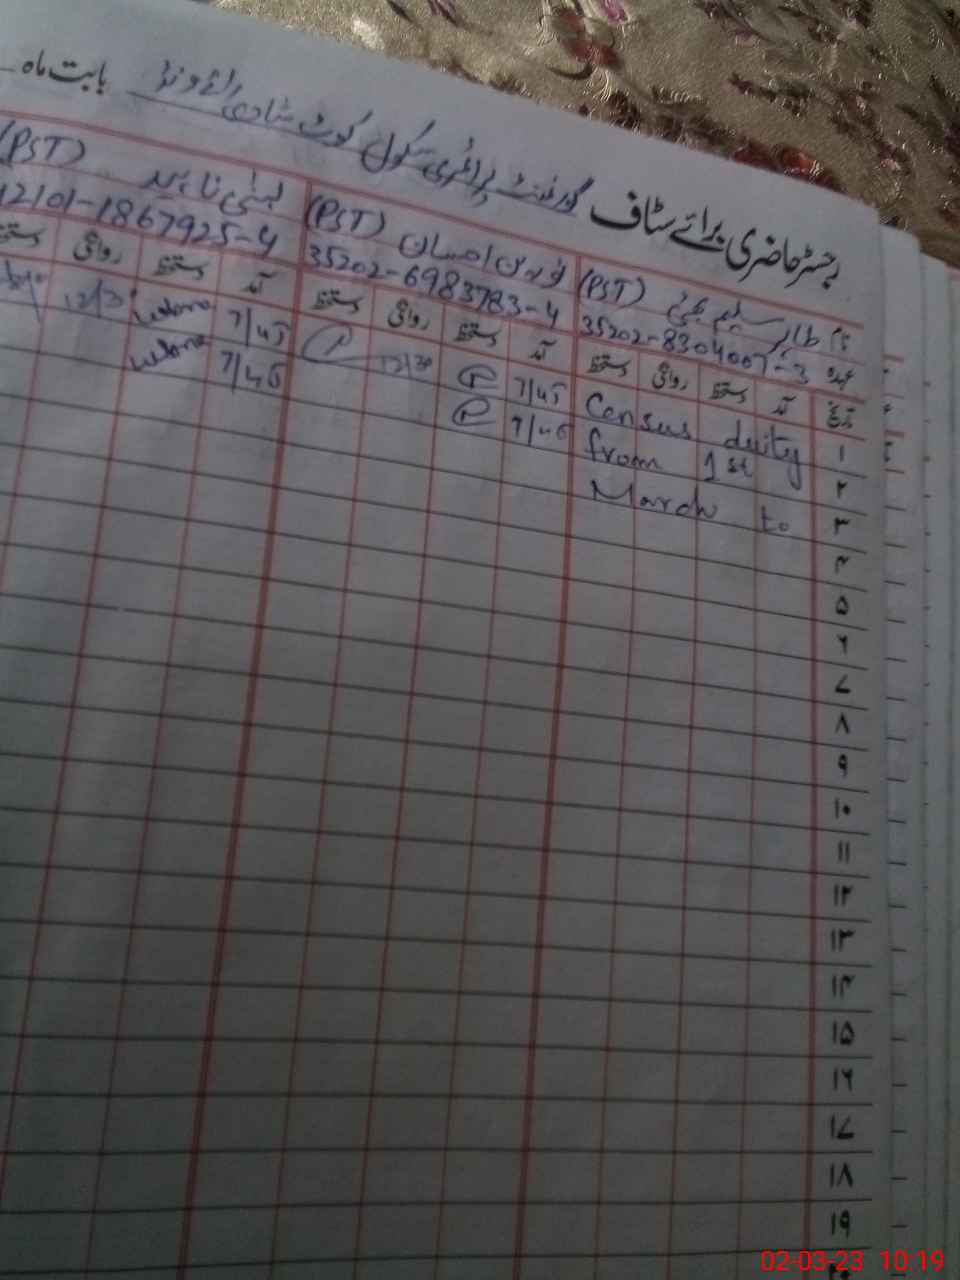 رجسٹر حاضری برائے سٹاف گورنمنٹ پرائمری سکول کوٹ شادی رائے ونڈ بابت ماہ
نام طاہر سلیم بھٹی (PST) نورین احسان (PST) لبنیٰ ناہید (PST)
عہدہ 35202-8304007-3 35202-6983783-4 12101-1867925-4
تاریخ آمد دستخط روانگی دستخط آمد دستخط روانگی دستخط آمد دستخط روانگی دستخط
۱ Census duity 7/45 12/30 7/45 12/3
۲ from 1st 7/45 7/45
۳ March to
۴
۵
۶
۷
۸
۹
۱۰
۱۱
۱۲
۱۳
۱۴
۱۵
۱۶
۱۷
۱۸
۱۹
02-03-23 10:19